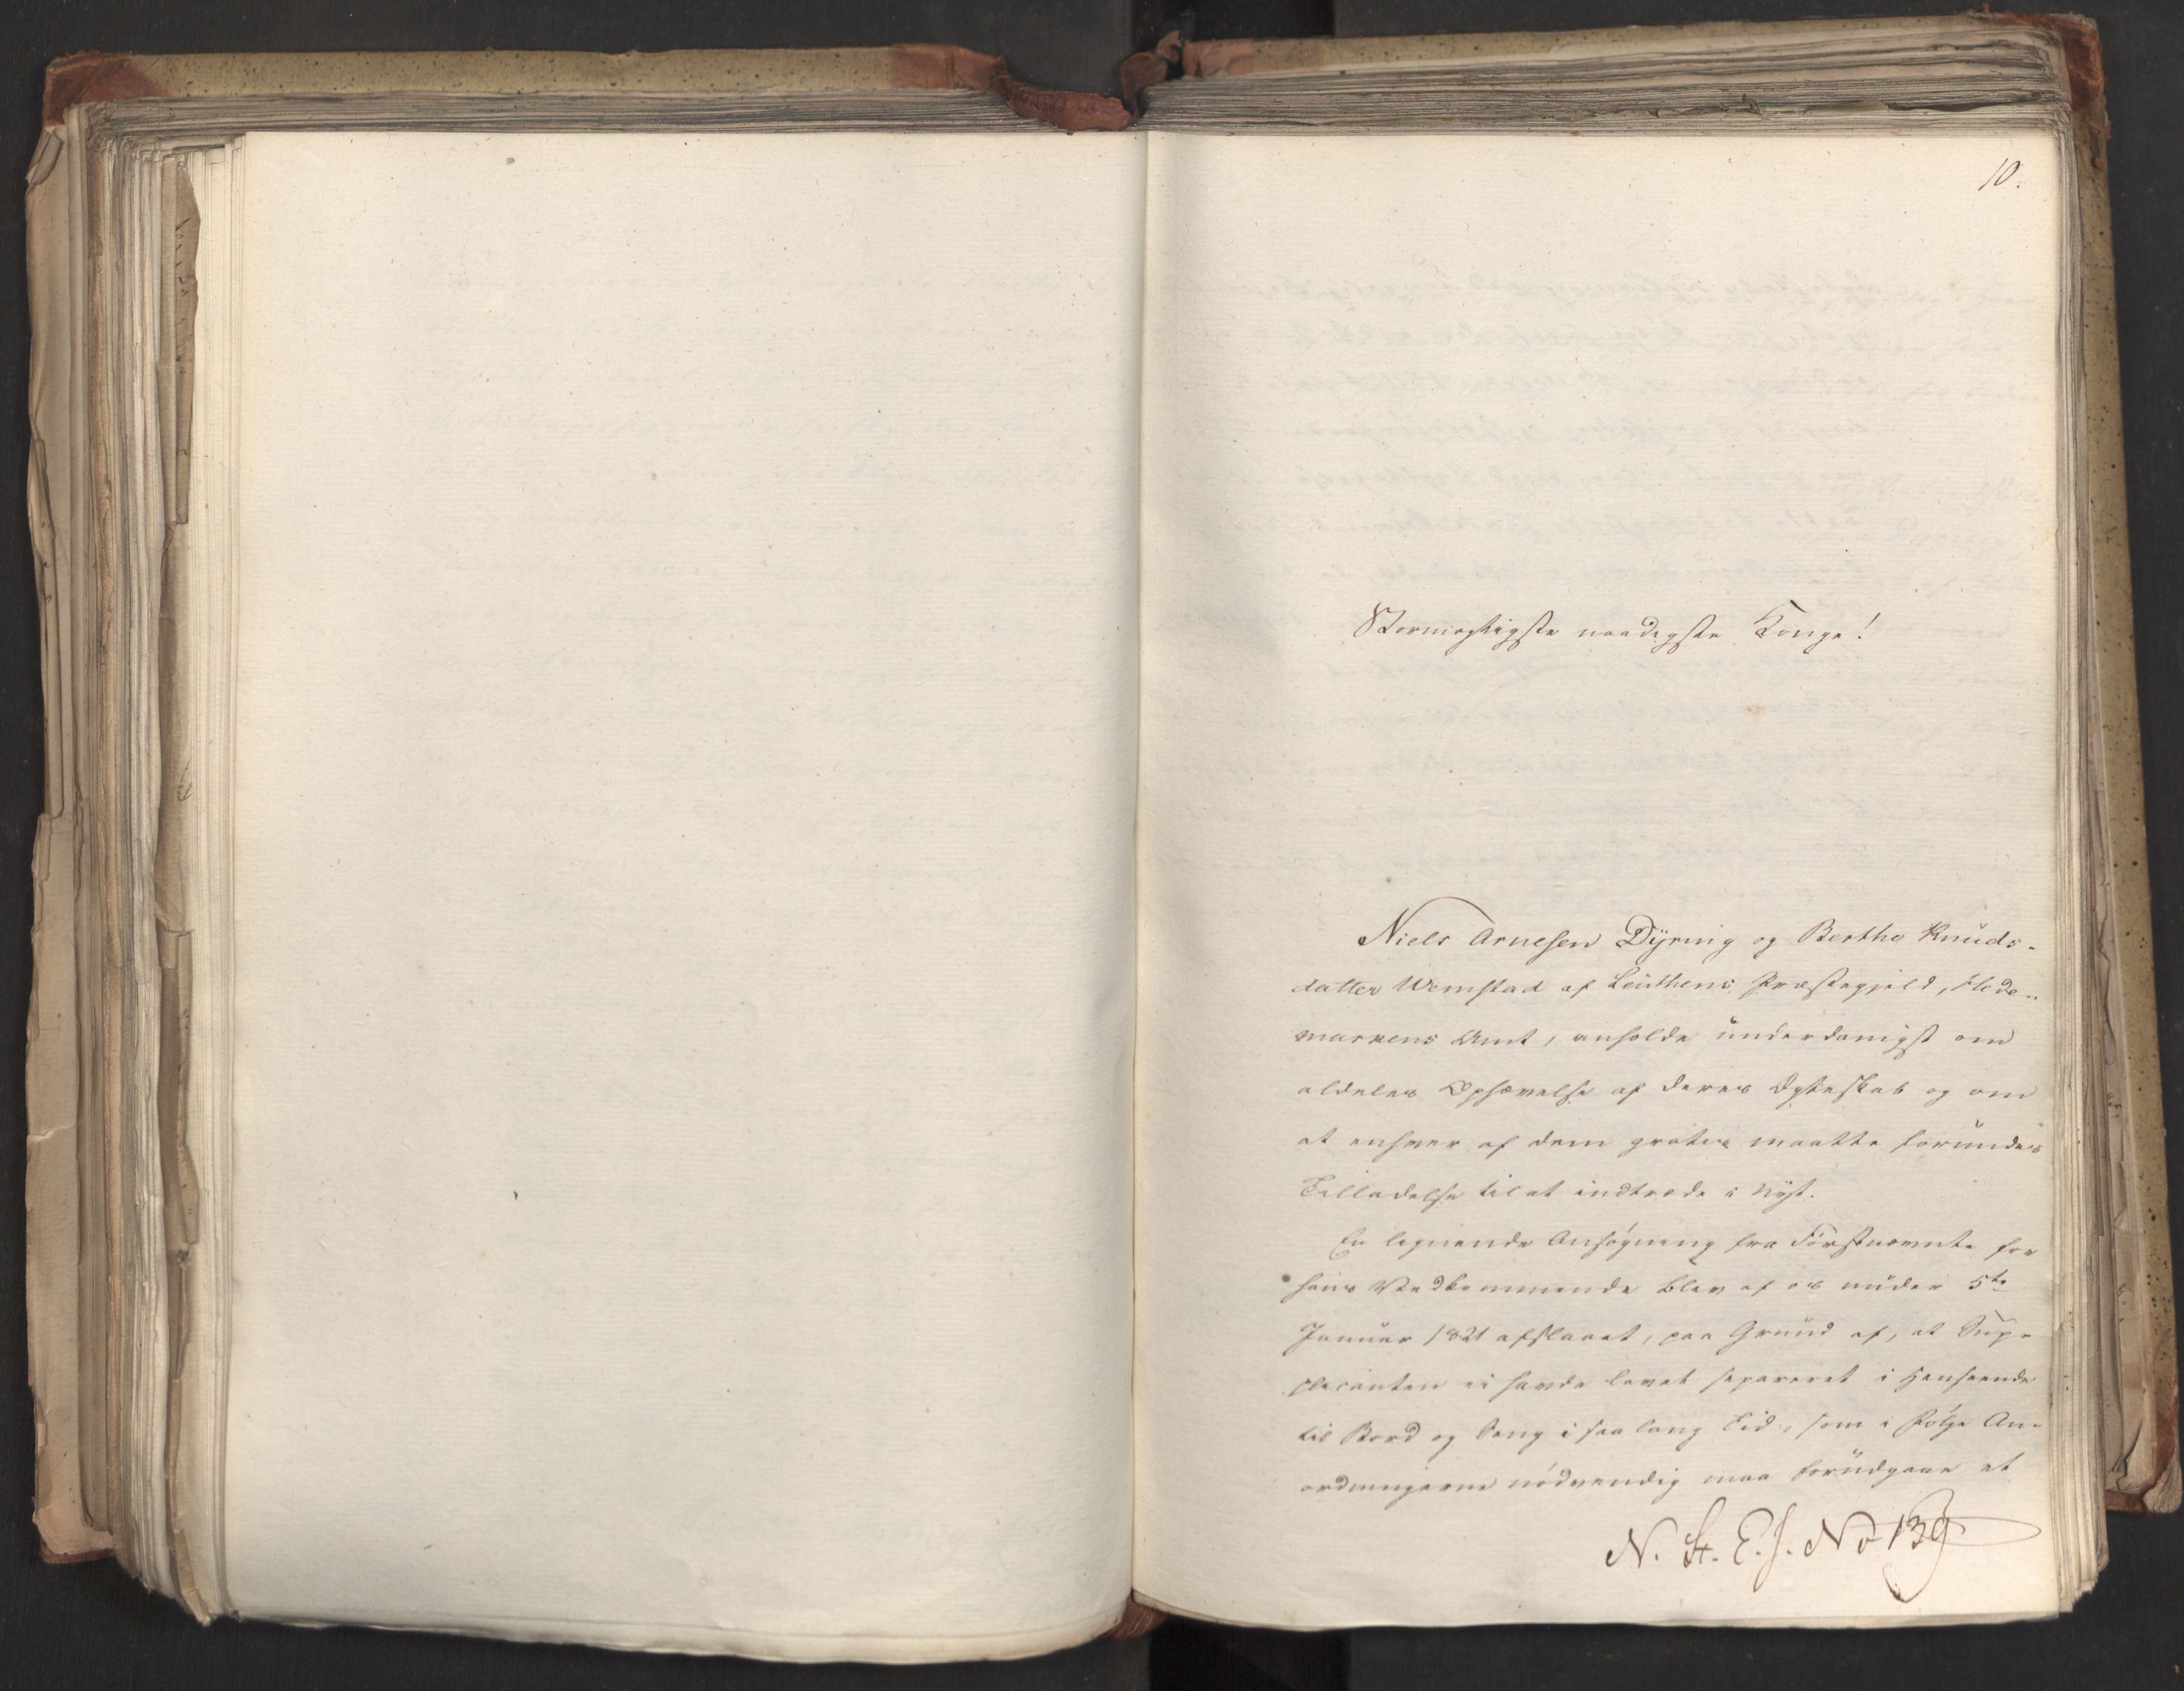 10.
Stormægtigste naadigste Konge!
Niels Arnesen Dÿring og Berthe Knuds-
datter Wemstad af Leuthens Præstegjeld, Hede-
markens Amt, anholde underdanigst om
aldeles Ophævelse af deres Ægteskab og om
at enhver af dem gratis maatte forundes
Tilladelse til at indtræde i Nyt.
En lignende Ansøgning fra Førstnævnte for
hans Vedkommende blev af os under 5te
Januar 1821 afslaaet, paa Grund af, at Sup-
plicanten ei havde levet separeret i Henseende
til Bord og Seng i saa lang Tid, som i Følge An-
ordningerne nødvendig maa forudgaae et
N. St. E. J. No 139